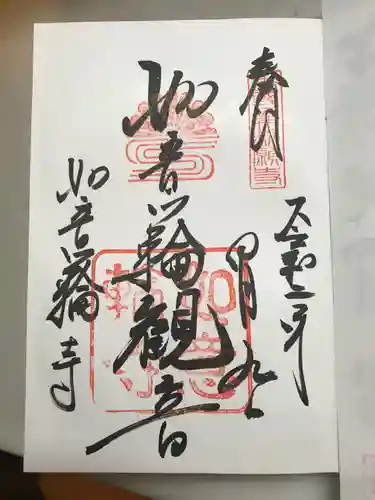 奉拝
令和二年
四月九日
如意輪観音
如意輪寺